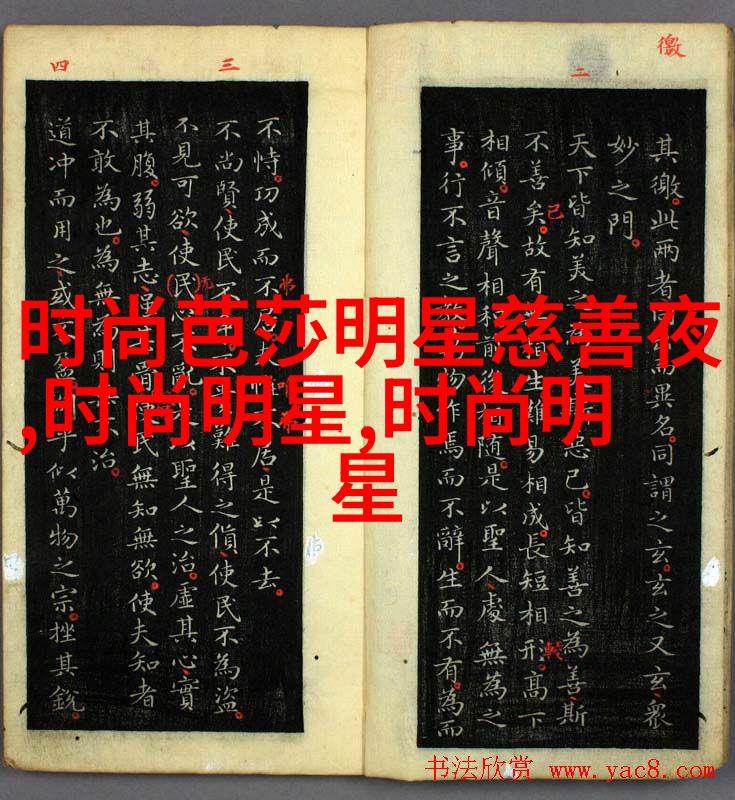 时尚芭莎明星慈善夜
,时尚明星,时尚明
星
徼
二
其徼此兩者同而異名同謂之玄玄之又玄衆
妙之門
天下皆知美之為惡已皆知善之為善斯
不善矣故有相生難易相成長短相形髙下
已
相傾音聲相和前後相随是以聖人處無為之
事行不言之教物作焉而不辭生而不有為而
三
四
不恃功成而不居夫惟不居是以不去
不尚賢使民不難得之貨使民不為盜
不見可欲使民心不亂以聖人之治虚其心實
其腹弱其志骨使民無知無欲使夫知者
不敢為也為無則治
道冲而用之或乎似萬物之宗挫其銳
书法欣赏 www.yac8.com